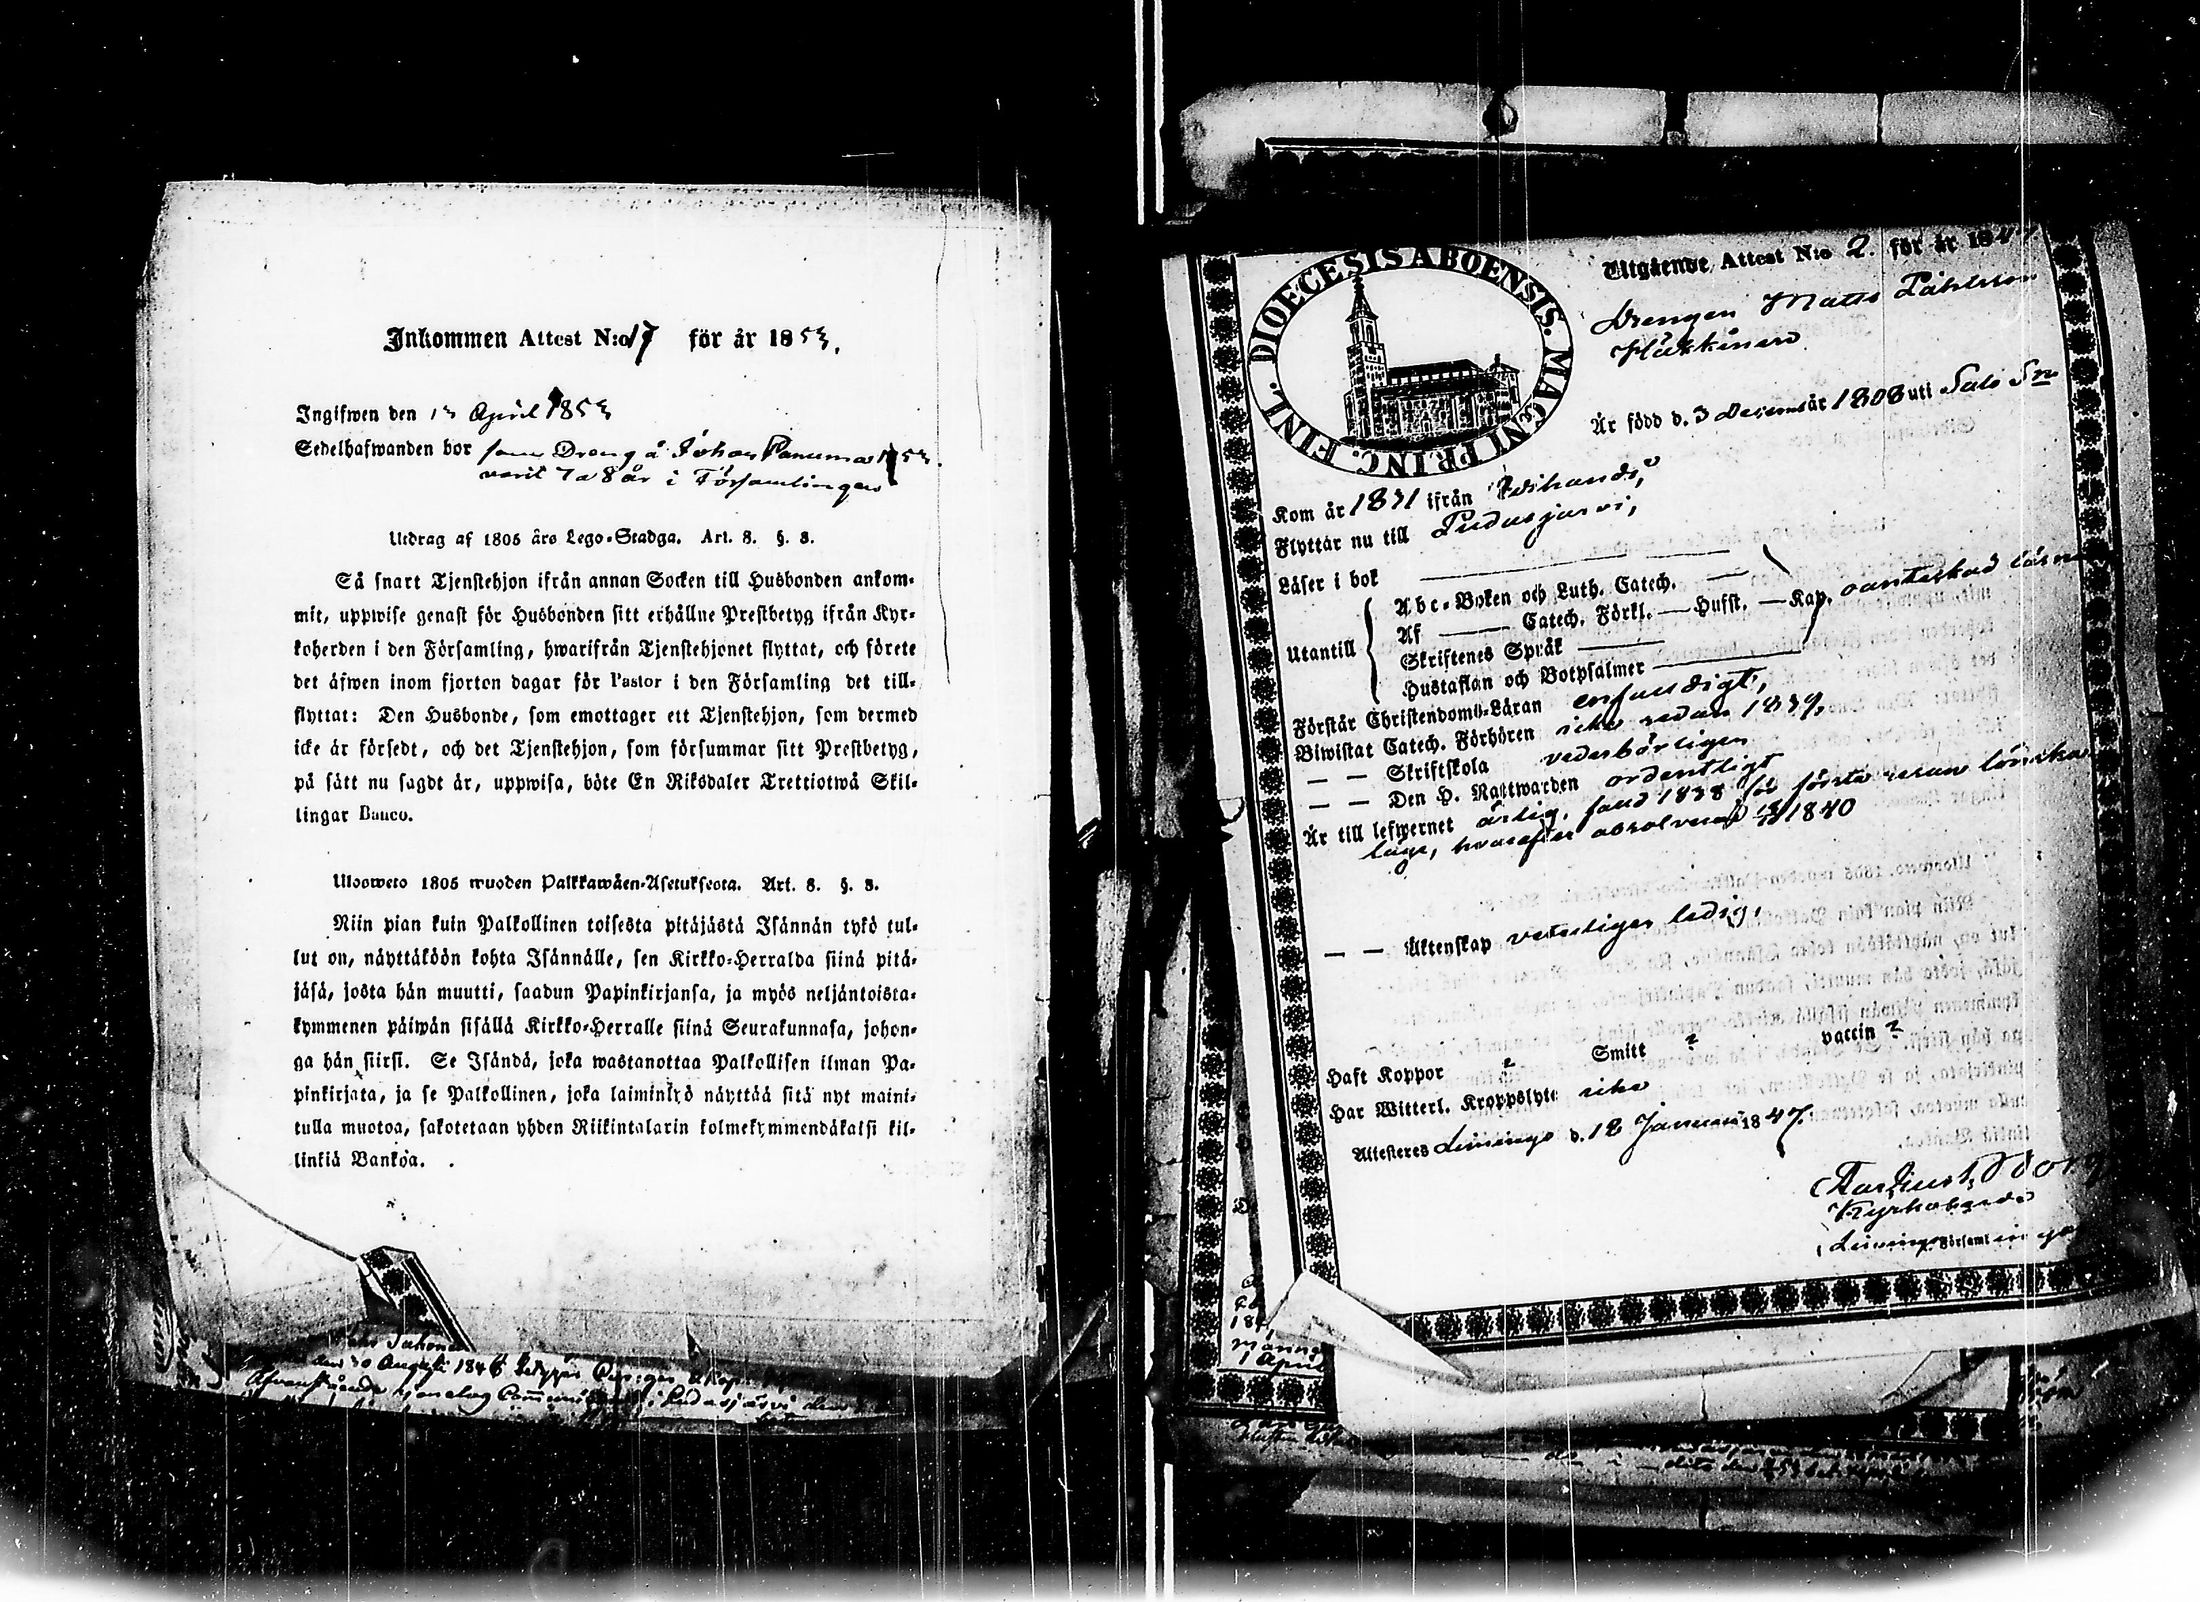 Inkommen Attest N:o 17 för år 1853.
Ingifwen den 13 April 1853
Sedelhafwanden bor som Dreng å Johan Panuma 1853.
varit 7 a 8 år i Församlingen
Utdrag af 1805 års Lego-Stadga. Art. 8. §. 8.
Så snart Tjenstehjon ifrån annan Socken till Husbonden ankom-
mit, uppwise genast för Husbonden sitt erhållne Prestbetyg ifrån Kyr-
koherden i den Församling, hwarifrån Tjenstehjonet flyttat, och förete
det äfwen inom fjorton dagar för Pastor i den Församling det till-
flyttat: Den Husbonde, som emottager ett Tjenstehjon, som dermed
icke är försedt, och det Tjenstehjon, som försummar sitt Prestbetyg,
på sätt nu sagdt är, uppwisa, böte En Riksdaler Trettiotwå Skil-
lingar Banco.
Ulosweto 1805 wuoden Palkkawäen-Asetuksesta. Art. 8. §. 8.
Niin pian kuin Palkollinen toisesta pitäjästä Isännän tykö tul-
lut on, näyttäköön kohta Isännälle, sen Kirkko-Herralda siinä pitä-
jäsä, josta hän muutti, saadun Papinkirjansa, ja myös neljäntoista-
kymmenen päiwän sisällä Kirkko-Herralle siinä Seurakunnasa, johon-
ga hän siirsi. Se Isändä, joka wastanottaa Palkollisen ilman Pa-
pinkirjata, ja se Palkollinen, joka laiminlyö näyttää sitä nyt maini-
tulla muotoa, sakotetaan yhden Riikintalarin kolmekymmendäkaksi kil-
linkiä Bankoa.
den 30 Augusti 1846
Pudasjärvi den
DIOECESIS ABOENSIS. MAGNI PRINC. FINL.
Utgående Attest N:o 2. för år 1847.
Drengen Matts Påhlsson
Häkkinen
Är född d. 3 December år 1808 uti Salo Sn
Kom år 1831 ifrån
Flyttar nu till Pudasjarvi,
Läser i bok
Utantill
Abc-Boken och Luth. Catech.
Af Catech. Förkl. Husst. Kap.
Skriftenes Språk
Hustaflan och Botpsalmer
Förstår Christendoms-Läran enfaldigt,
Biwistat Catech. Förhören icke sedan 1839,
— — Skriftskola vederbörligen
— — Den H. Nattwarden ordentligt
Är till lefwernet ärlig, fand 1838 för första resan lönska
läge, hvarefter absolverad 1840
— — Äktenskap veterligen ledig.
Haft Koppor ? Smitt ? vaccin ?
Har Witterl. Kroppslyte icke
Attesteres Limingo d. 12 Januari 1847.
Kyrkoherde
i Limingo Församlingen
1 April